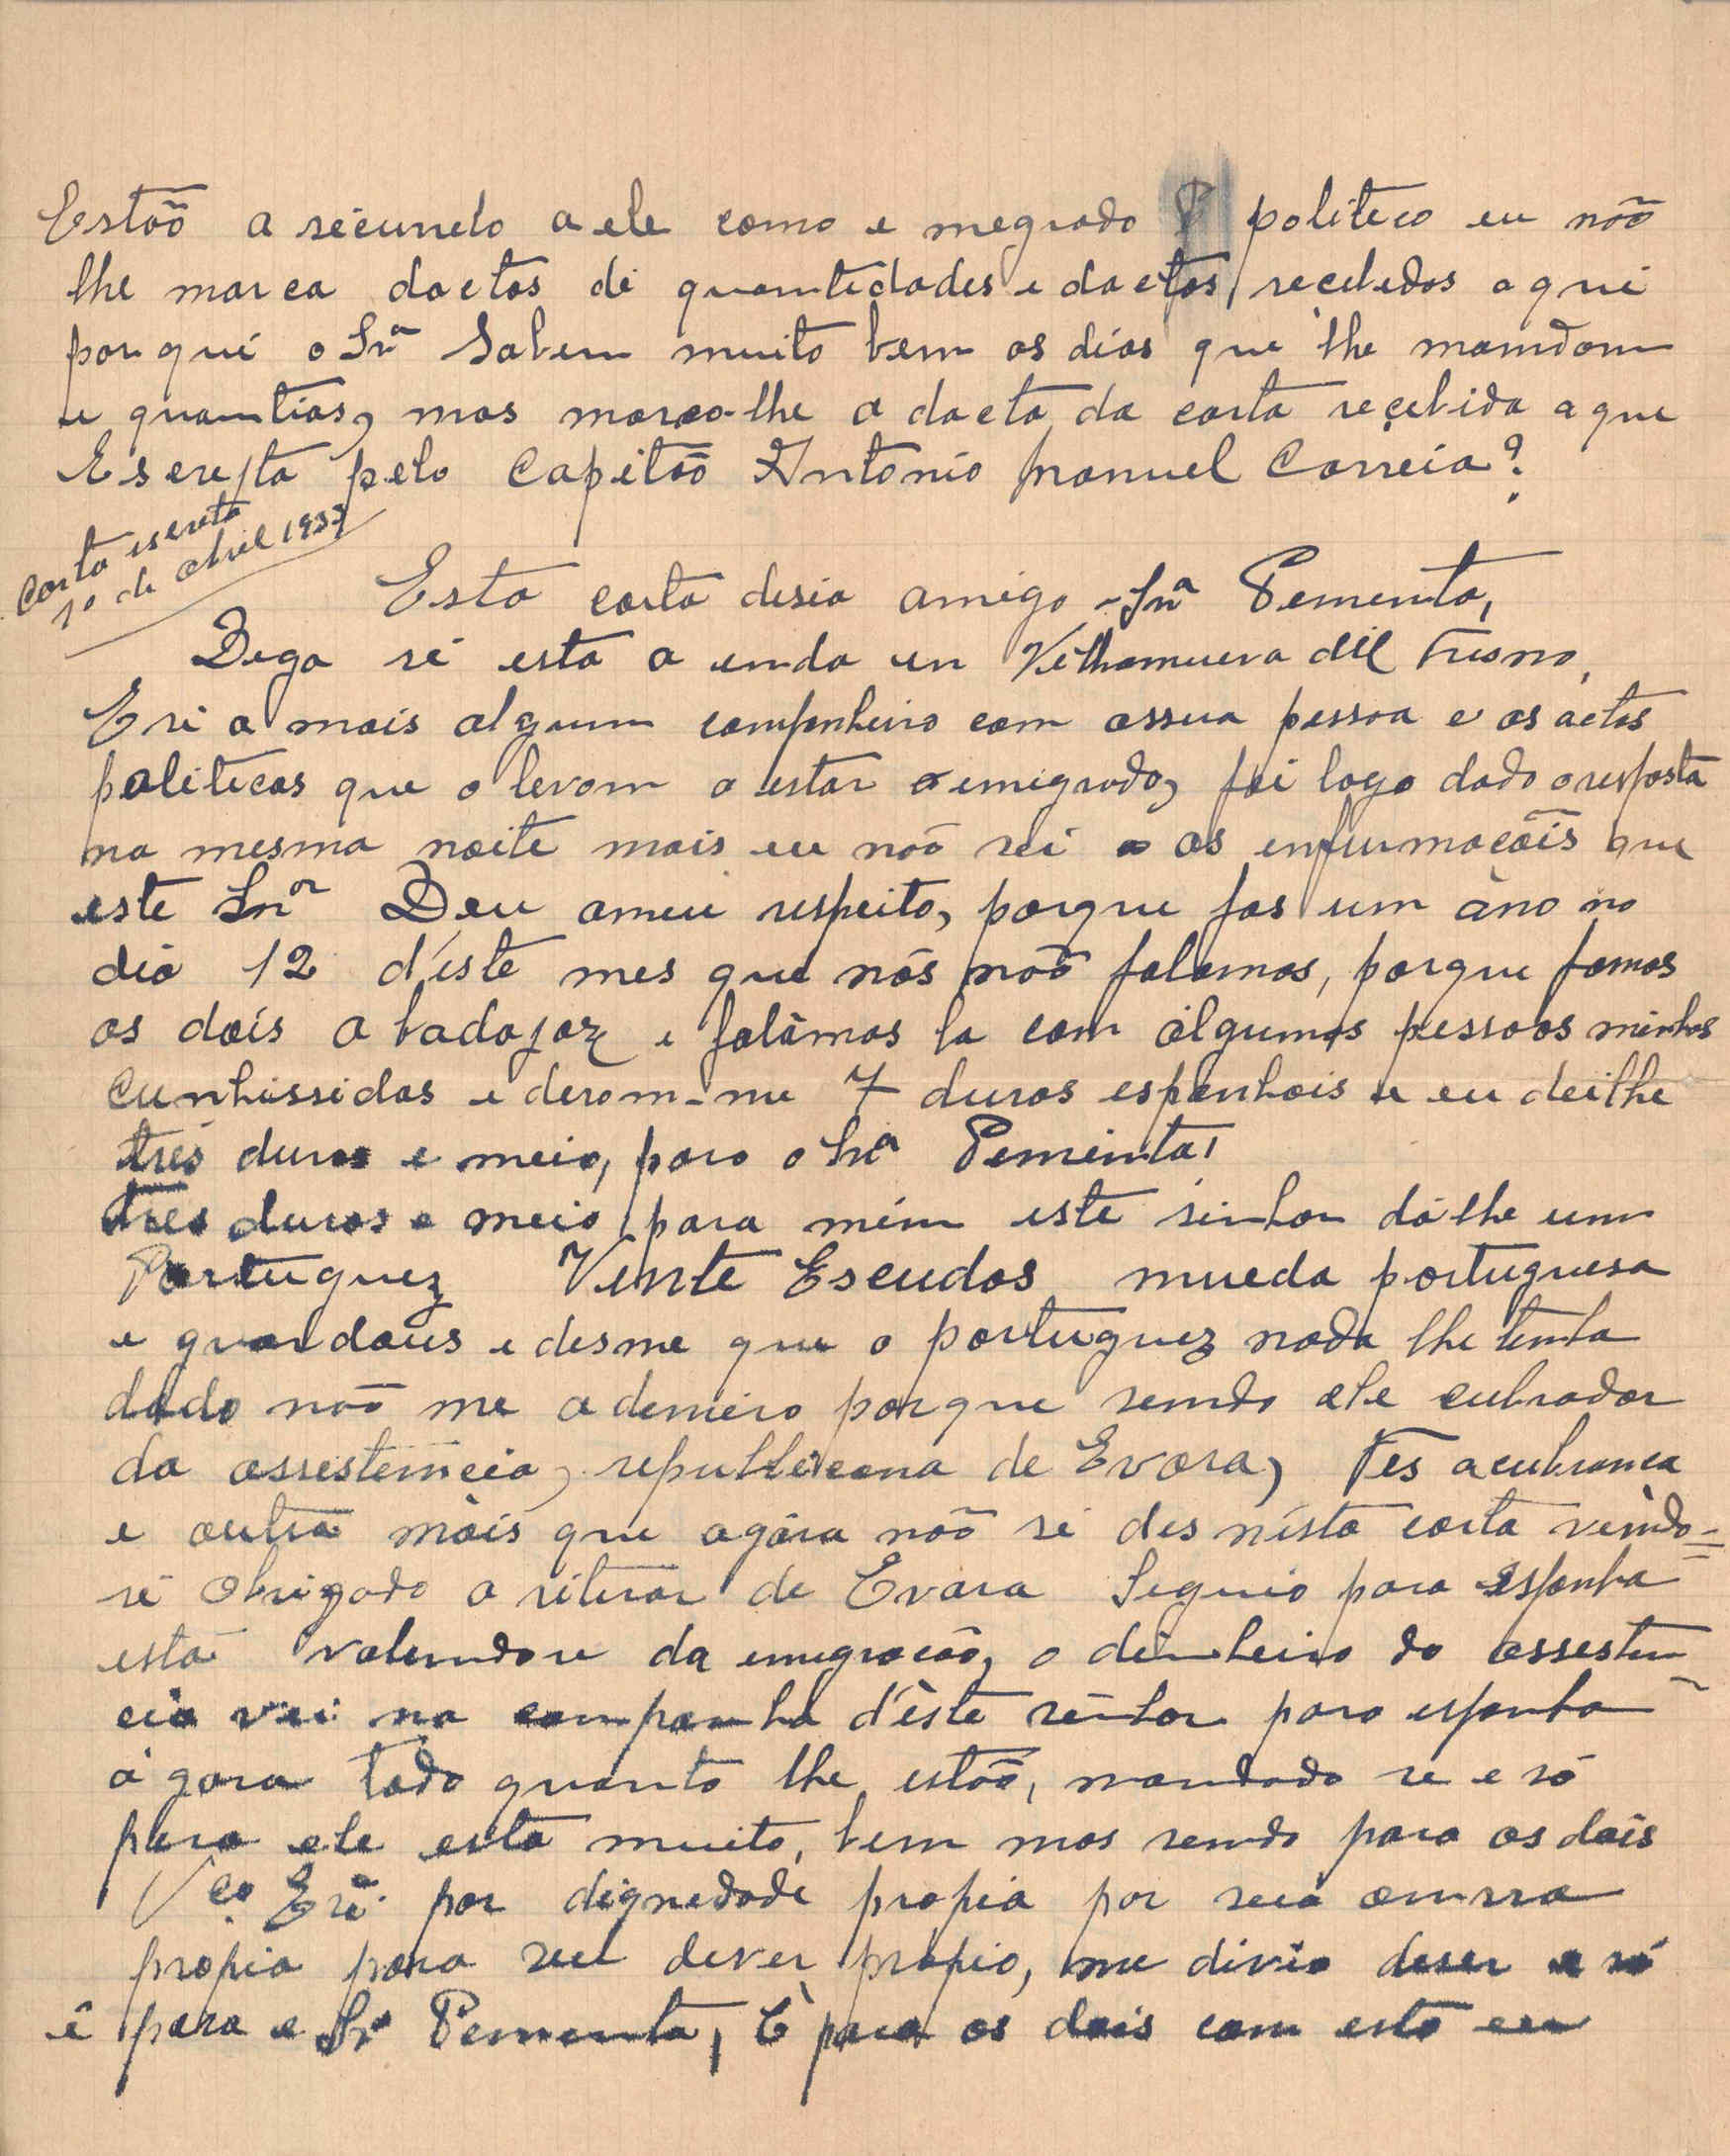 Estão a sêcurrelo a ele como e megrado politeco eu não
lhe marca dactas de quantidades e dactas recebedos aqui
porqui o Snr Sabem muito bem os dias que lhe mandam
e quantias, mas marco-lhe a dacta da carta reçebida aque
Escreyta pelo Capitão António Manuel Correia?
Carta escreta
1º de abril 1933
Esta carta desia amigo Snr Pementa,
Dega sê esta a enda en Velhanueva dél Fresno,
E si a mais algum companheiro com assua pessoa e os actos
politecos que o levom a estar emigrado, foi logo dado a resposta
na mesma noite mais eu não sei as enfurmacãis que
este Snor Deu ameu respeito, porque fas um âno no
dia 12 d'éste mes que nós não falamos, porque fomos
os dois a badajoz e falâmos la com algumas pessoas minhas
Cunhissidas e derom-me 7 duros espanhois e eu deilhe
três duros e meio, para o Snr Pementa,
três duros e meio para mim este sinhor dá lhe um
Portuguez Vente Escudos mueda portuguesa
e guardous e desme que o portuguez nada lhe tenha
dado não me ademiro porque sendo ele cubrador
da assestencia, republicana de Evora, Fes acubranca
e outra máis que agára não si des nésta carta vendo=
sê Obrigado a siterar de Evora Seguio para espanha
está valendose da emegracão, o dinheiro da assesten
cia vei na companha d'éste senhor para espanha
ágora Todo quanto lhe estão, mandado se e só
para ele esta muito, bem mas sendo para os dois
Vça Exª por dignedade propia por sua onrra
propia para seu dever própio, me divia deser só
é para o Snr Pementa, È para os dois com esta eu